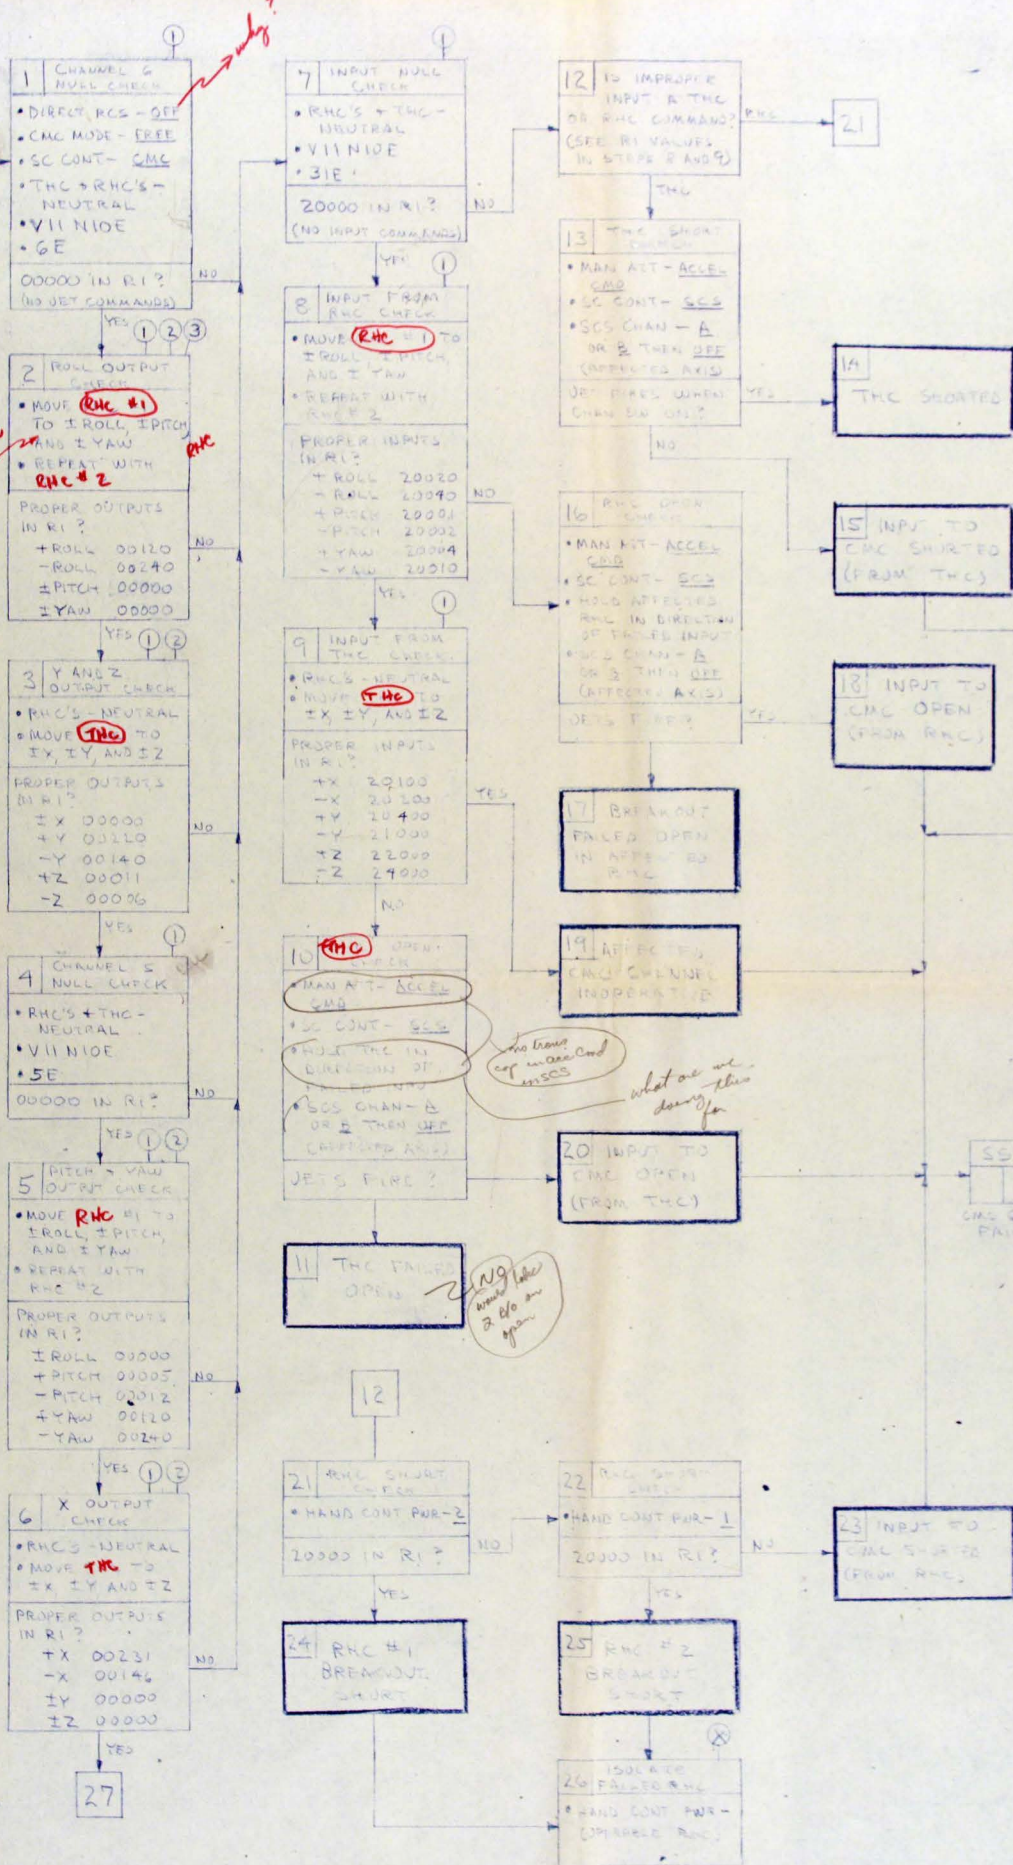 why?
1
1 CHANNEL 6
NULL CHECK
• DIRECT RCS - OFF
• CMC MODE - FREE
• SC CONT - CMC
• THC + RHC'S -
NEUTRAL
• V11 N10E
• 6E
00000 IN R1?
(NO JET COMMANDS)
NO
YES
1 2 3
2 ROLL OUTPUT
CHECK
• MOVE RHC #1
TO ±ROLL, ±PITCH,
AND ±YAW
RHC
• REPEAT WITH
RHC #2
PROPER OUTPUTS
IN R1?
+ROLL 00120
-ROLL 00240
±PITCH 00000
±YAW 00000
NO
YES
1 2
3 Y AND Z
OUTPUT CHECK
• RHC'S - NEUTRAL
• MOVE THC TO
±X, ±Y, AND ±Z
PROPER OUTPUTS
IN R1?
±X 00000
+Y 00220
-Y 00140
+Z 00011
-Z 00006
NO
YES
1
4 CHANNEL 5
NULL CHECK
• RHC'S + THC -
NEUTRAL
• V11 N10E
• 5E
00000 IN R1?
NO
YES
1 2
5 PITCH + YAW
OUTPUT CHECK
• MOVE RHC #1 TO
±ROLL, ±PITCH,
AND ±YAW
• REPEAT WITH
RHC #2
PROPER OUTPUTS
IN R1?
±ROLL 00000
+PITCH 00005
-PITCH 00012
+YAW 00120
-YAW 00240
NO
YES
1 2
6 X OUTPUT
CHECK
• RHC'S - NEUTRAL
• MOVE THC TO
±X, ±Y AND ±Z
PROPER OUTPUTS
IN R1?
+X 00231
-X 00146
±Y 00000
±Z 00000
NO
YES
27
1
7 INPUT NULL
CHECK
• RHC'S + THC -
NEUTRAL
• V11 N10E
• 31E
20000 IN R1?
(NO INPUT COMMANDS)
NO
YES
1
8 INPUT FROM
RHC CHECK
• MOVE RHC #1 TO
±ROLL, ±PITCH,
AND ±YAW
• REPEAT WITH
RHC #2
PROPER INPUTS
IN R1?
+ROLL 20020
-ROLL 20040
+PITCH 20001
-PITCH 20002
+YAW 20004
-YAW 20010
NO
YES
1
9 INPUT FROM
THC CHECK
• RHC'S - NEUTRAL
• MOVE THC TO
±X, ±Y, AND ±Z
PROPER INPUTS
IN R1?
+X 20100
-X 20200
+Y 20400
-Y 21000
+Z 22000
-Z 24000
YES
NO
10 THC OPEN
CHECK
• MAN ATT - ACCEL
CMD
• SC CONT - SCS
• HOLD THC IN
DIRECTION OF
FAILED
• SCS CHAN - A
OR B THEN OFF
(AFFECTED AXIS)
JETS FIRE?
no trans
cap in acc cmd
in SCS
what are we
doing this
for
11 THC FAILED
OPEN
NO
would take
2 B/O on
open
12
21 RHC SHORT
CHECK
• HAND CONT PWR - 2
20000 IN R1?
NO
YES
24 RHC #1
BREAKOUT
SHORT
12 IS IMPROPER
INPUT A THC
OR RHC COMMAND?
(SEE R1 VALUES
IN STEPS 8 AND 9)
RHC
21
THC
13 THC SHORT
CHECK
• MAN ATT - ACCEL
CMD
• SC CONT - SCS
• SCS CHAN - A
OR B THEN OFF
(AFFECTED AXIS)
JET FIRES WHEN
CHAN SW ON?
YES
NO
14
THC SHORTED
15 INPUT TO
CMC SHORTED
(FROM THC)
16 RHC OPEN
CHECK
• MAN ATT - ACCEL
CMD
• SC CONT - SCS
• HOLD AFFECTED
RHC IN DIRECTION
OF FAILED INPUT
• SCS CHAN - A
OR B THEN OFF
(AFFECTED AXIS)
JETS FIRE?
YES
18 INPUT TO
CMC OPEN
(FROM RHC)
17 BREAKOUT
FAILED OPEN
IN AFFECTED
RHC
19 AFFECTED
CMC CHANNEL
INOPERATIVE
20 INPUT TO
CMC OPEN
(FROM THC)
SS
CMC
FAI
22 RHC SHORT
CHECK
• HAND CONT PWR - 1
20000 IN R1?
NO
YES
23 INPUT TO
CMC SHORTED
(FROM RHC)
25 RHC #2
BREAKOUT
SHORT
26 ISOLATE
FAILED RHC
• HAND CONT PWR -
(OPERABLE RHC)